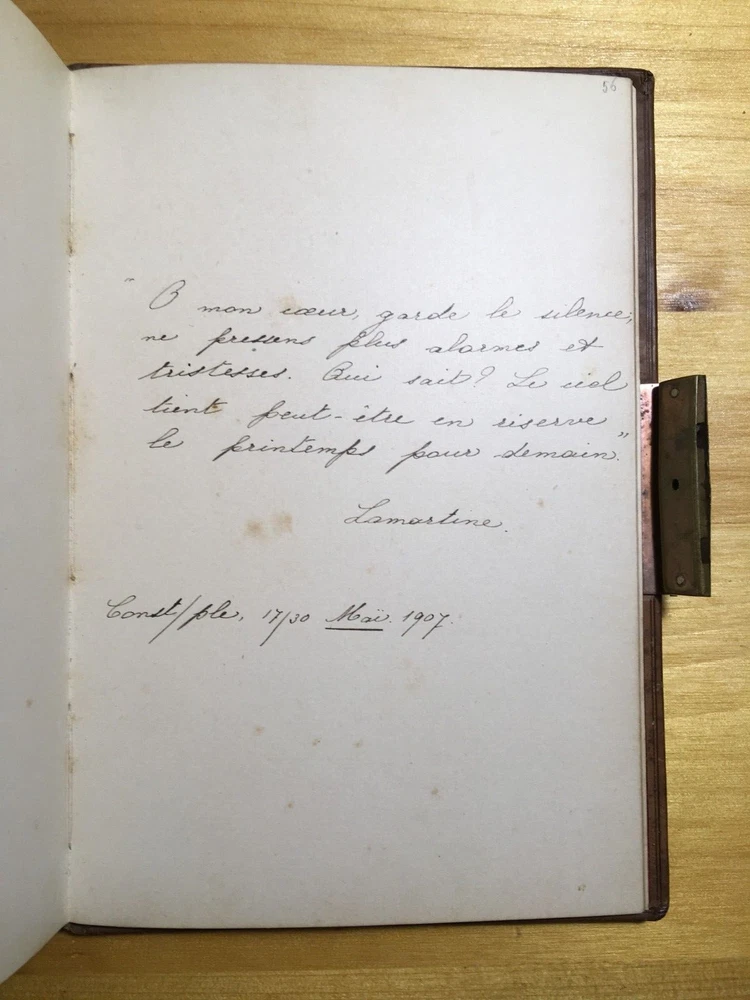 56
" O mon cœur, garde le silence,
ne pressens plus alarmes et
tristesses. Qui sait? Le ciel
tient peut-être en riserve
le printemps pour demain."
Lamartine.
Const/ple, 17/30 Maï. 1907.